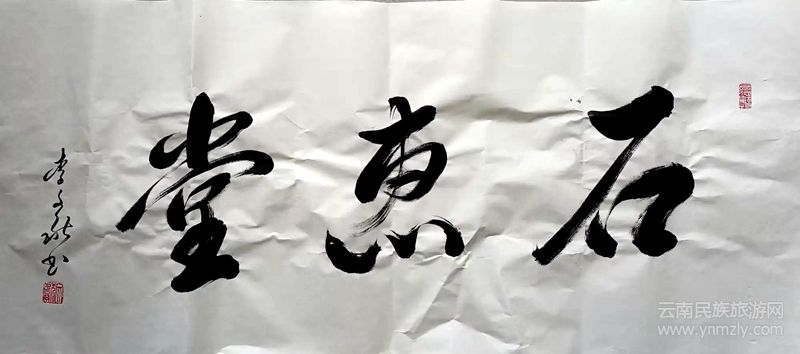 石惠堂
李文书
云南民族旅游网
www.ynmzly.com